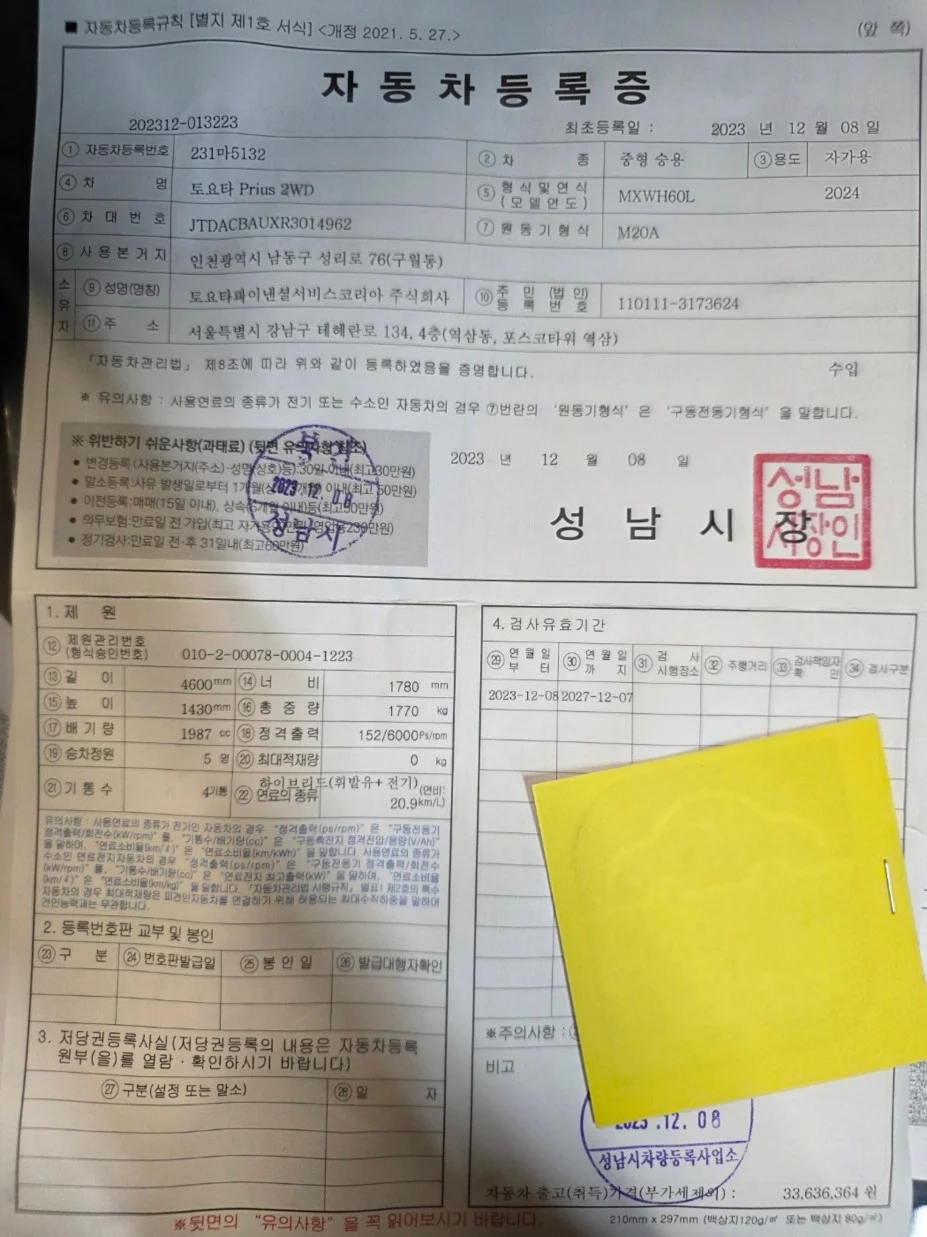 ■ 자동차등록규칙 [별지 제1호 서식] <개정 2021. 5. 27.>
(앞 쪽)
자동차등록증
202312-013223
최초등록일 : 2023 년 12 월 08 일
① 자동차등록번호 231마5132 ② 차 종 중형 승용 ③ 용도 자가용
④ 차 명 토요타 Prius 2WD ⑤ 형식 및 연식 (모델연도) MXWH60L 2024
⑥ 차대번호 JTDACBAUXR3014962 ⑦ 원동기형식 M20A
⑧ 사용본거지 인천광역시 남동구 성리로 76(구월동)
소유자 ⑨ 성명(명칭) 토요타파이낸셜서비스코리아 주식회사 ⑩ 주민(법인)등록번호 110111-3173624
⑪ 주 소 서울특별시 강남구 테헤란로 134, 4층(역삼동, 포스코타워 역삼)
「자동차관리법」 제8조에 따라 위와 같이 등록하였음을 증명합니다.
수입
※ 유의사항 : 사용연료의 종류가 전기 또는 수소인 자동차의 경우 ⑦번란의 '원동기형식' 은 '구동전동기형식' 을 말합니다.
※ 위반하기 쉬운사항(과태료) (뒷면 유의사항 참조)
• 변경등록(사용본거지(주소)·성명(상호)등):30일 이내(최고30만원)
• 말소등록:사유 발생일로부터 1개월 이내(최고 50만원)
• 이전등록:매매(15일 이내), 상속(6개월 이내)등(최고50만원)
• 의무보험:만료일 전 가입
• 정기검사:만료일 전·후 31일내(최고60만원)
2023. 12. 08
성남시
2023 년 12 월 08 일
성 남 시 장
성남
시장인
1. 제 원
⑫ 제원관리번호 (형식승인번호) 010-2-00078-0004-1223
⑬ 길 이 4600mm ⑭ 너 비 1780 mm
⑮ 높 이 1430mm ⑯ 총 중 량 1770 kg
⑰ 배 기 량 1987 cc ⑱ 정격출력 152/6000Ps/rpm
⑲ 승차정원 5 명 ⑳ 최대적재량 0 kg
㉑ 기통수 4기통 ㉒ 연료의 종류 하이브리드(휘발유+전기) (연비: 20.9km/L)
유의사항 : 사용연료의 종류가 전기인 자동차의 경우 "정격출력(ps/rpm)" 은 "구동전동기
정격출력/회전수(kW/rpm)" 를, "기통수/배기량(cc)" 은 "구동축전지 정격전압/용량(V/Ah)"
을 말하며, "연료소비율(km/ℓ)" 은 "연료소비율(km/kWh)" 을 말합니다. 사용연료의 종류가
수소인 연료전지자동차의 경우 "정격출력(ps/rpm)" 은 "구동전동기 정격출력/회전수
(kW/rpm)" 를, "기통수/배기량(cc)" 은 "연료전지 최고출력(kW)" 을 말하며, "연료소비율
(km/ℓ)" 은 "연료소비율(km/kg)" 을 말합니다. 「자동차관리법 시행규칙」 별표1 제2호의 특수
자동차의 경우 최대적재량은 피견인자동차를 연결하기 위해 허용되는 최대수직하중을 말하며
견인능력과는 무관합니다.
2. 등록번호판 교부 및 봉인
㉓ 구 분 ㉔ 번호판발급일 ㉕ 봉 인 일 ㉖ 발급대행자확인
3. 저당권등록사실(저당권등록의 내용은 자동차등록
원부(을)를 열람·확인하시기 바랍니다)
㉗ 구분(설정 또는 말소) ㉘ 일 자
4. 검사유효기간
㉙ 연월일 부터 ㉚ 연월일 까지 ㉛ 검사 시행장소 ㉜ 주행거리 ㉝ 검사책임자 확인 ㉞ 검사구분
2023-12-08 2027-12-07
※주의사항 :
비고
2023 .12. 08
성남시차량등록사업소
자동차 출고(취득)가격(부가세제외) : 33,636,364 원
※뒷면의 "유의사항" 을 꼭 읽어보시기 바랍니다.
210mm x 297mm (백상지120g/㎡ 또는 백상지 80g/㎡)